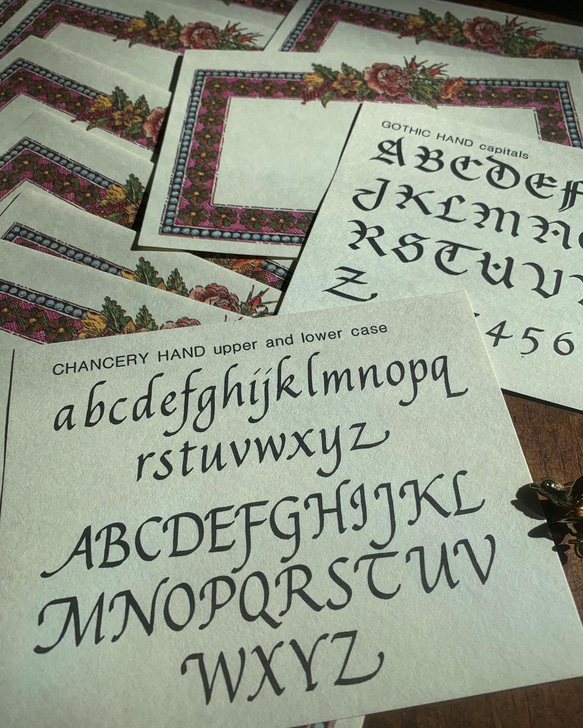 GOTHIC HAND capitals
ABCDEF
JKLMN
RSTUV
Z
456
CHANCERY HAND upper and lower case
abcdefghijklmnopq
rstuvwxyz
ABCDEFGHIJKL
MNOPQRSTUV
WXYZ